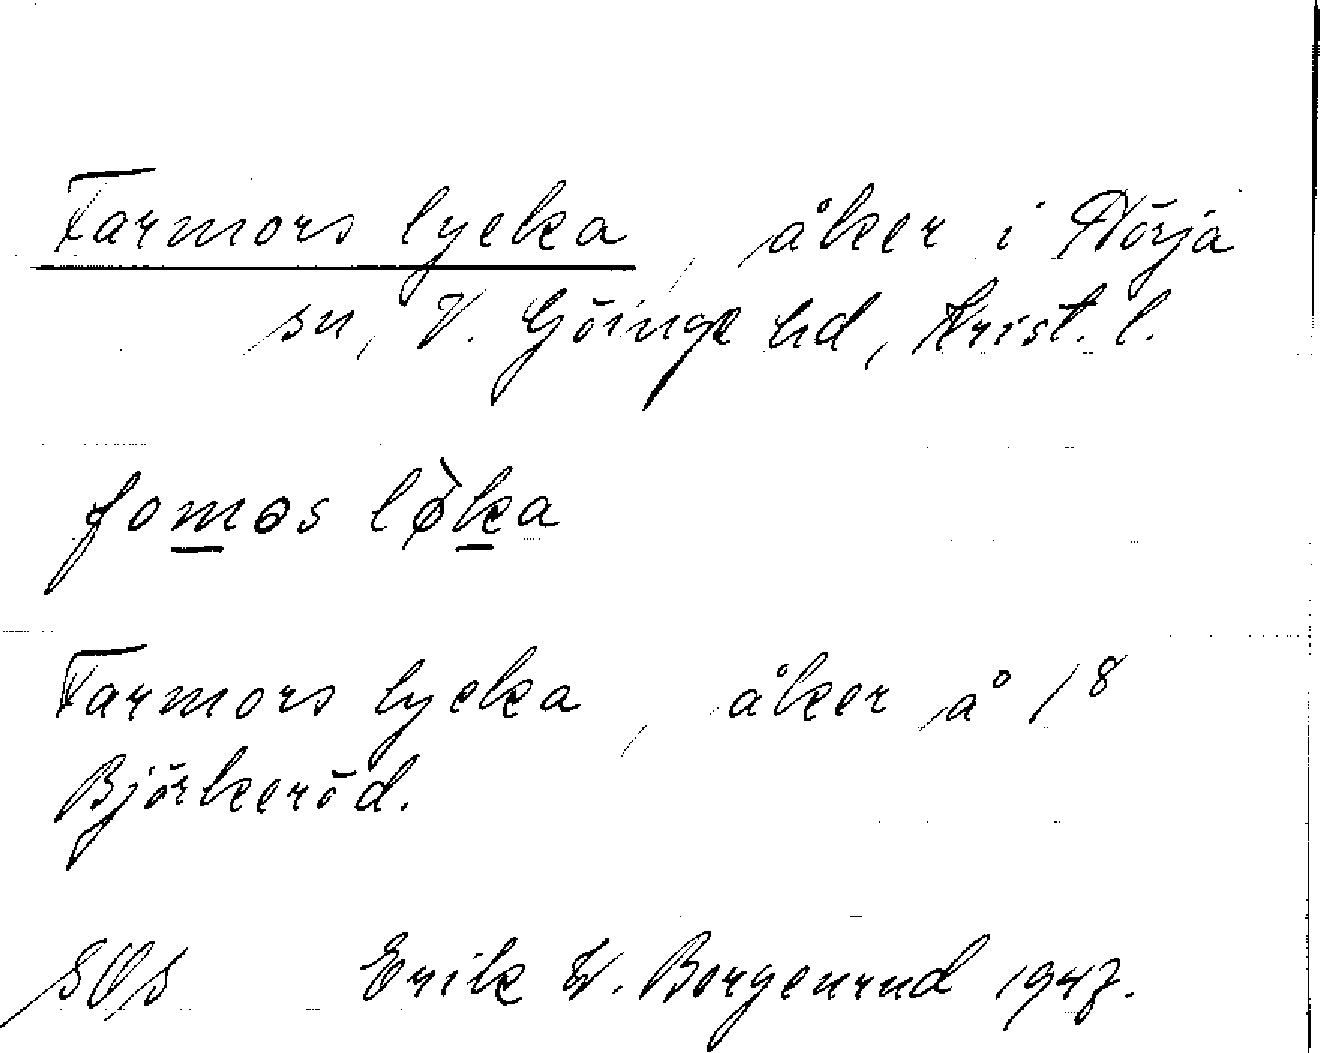 Farmors lycka, åker i Nörja
sn, V. Göinge hd, Krist. l.
fomos lø̀ka
Farmors lycka, åker å 1⁸
Björkeröd.
SOs Erik W. Borgenrud 1947.